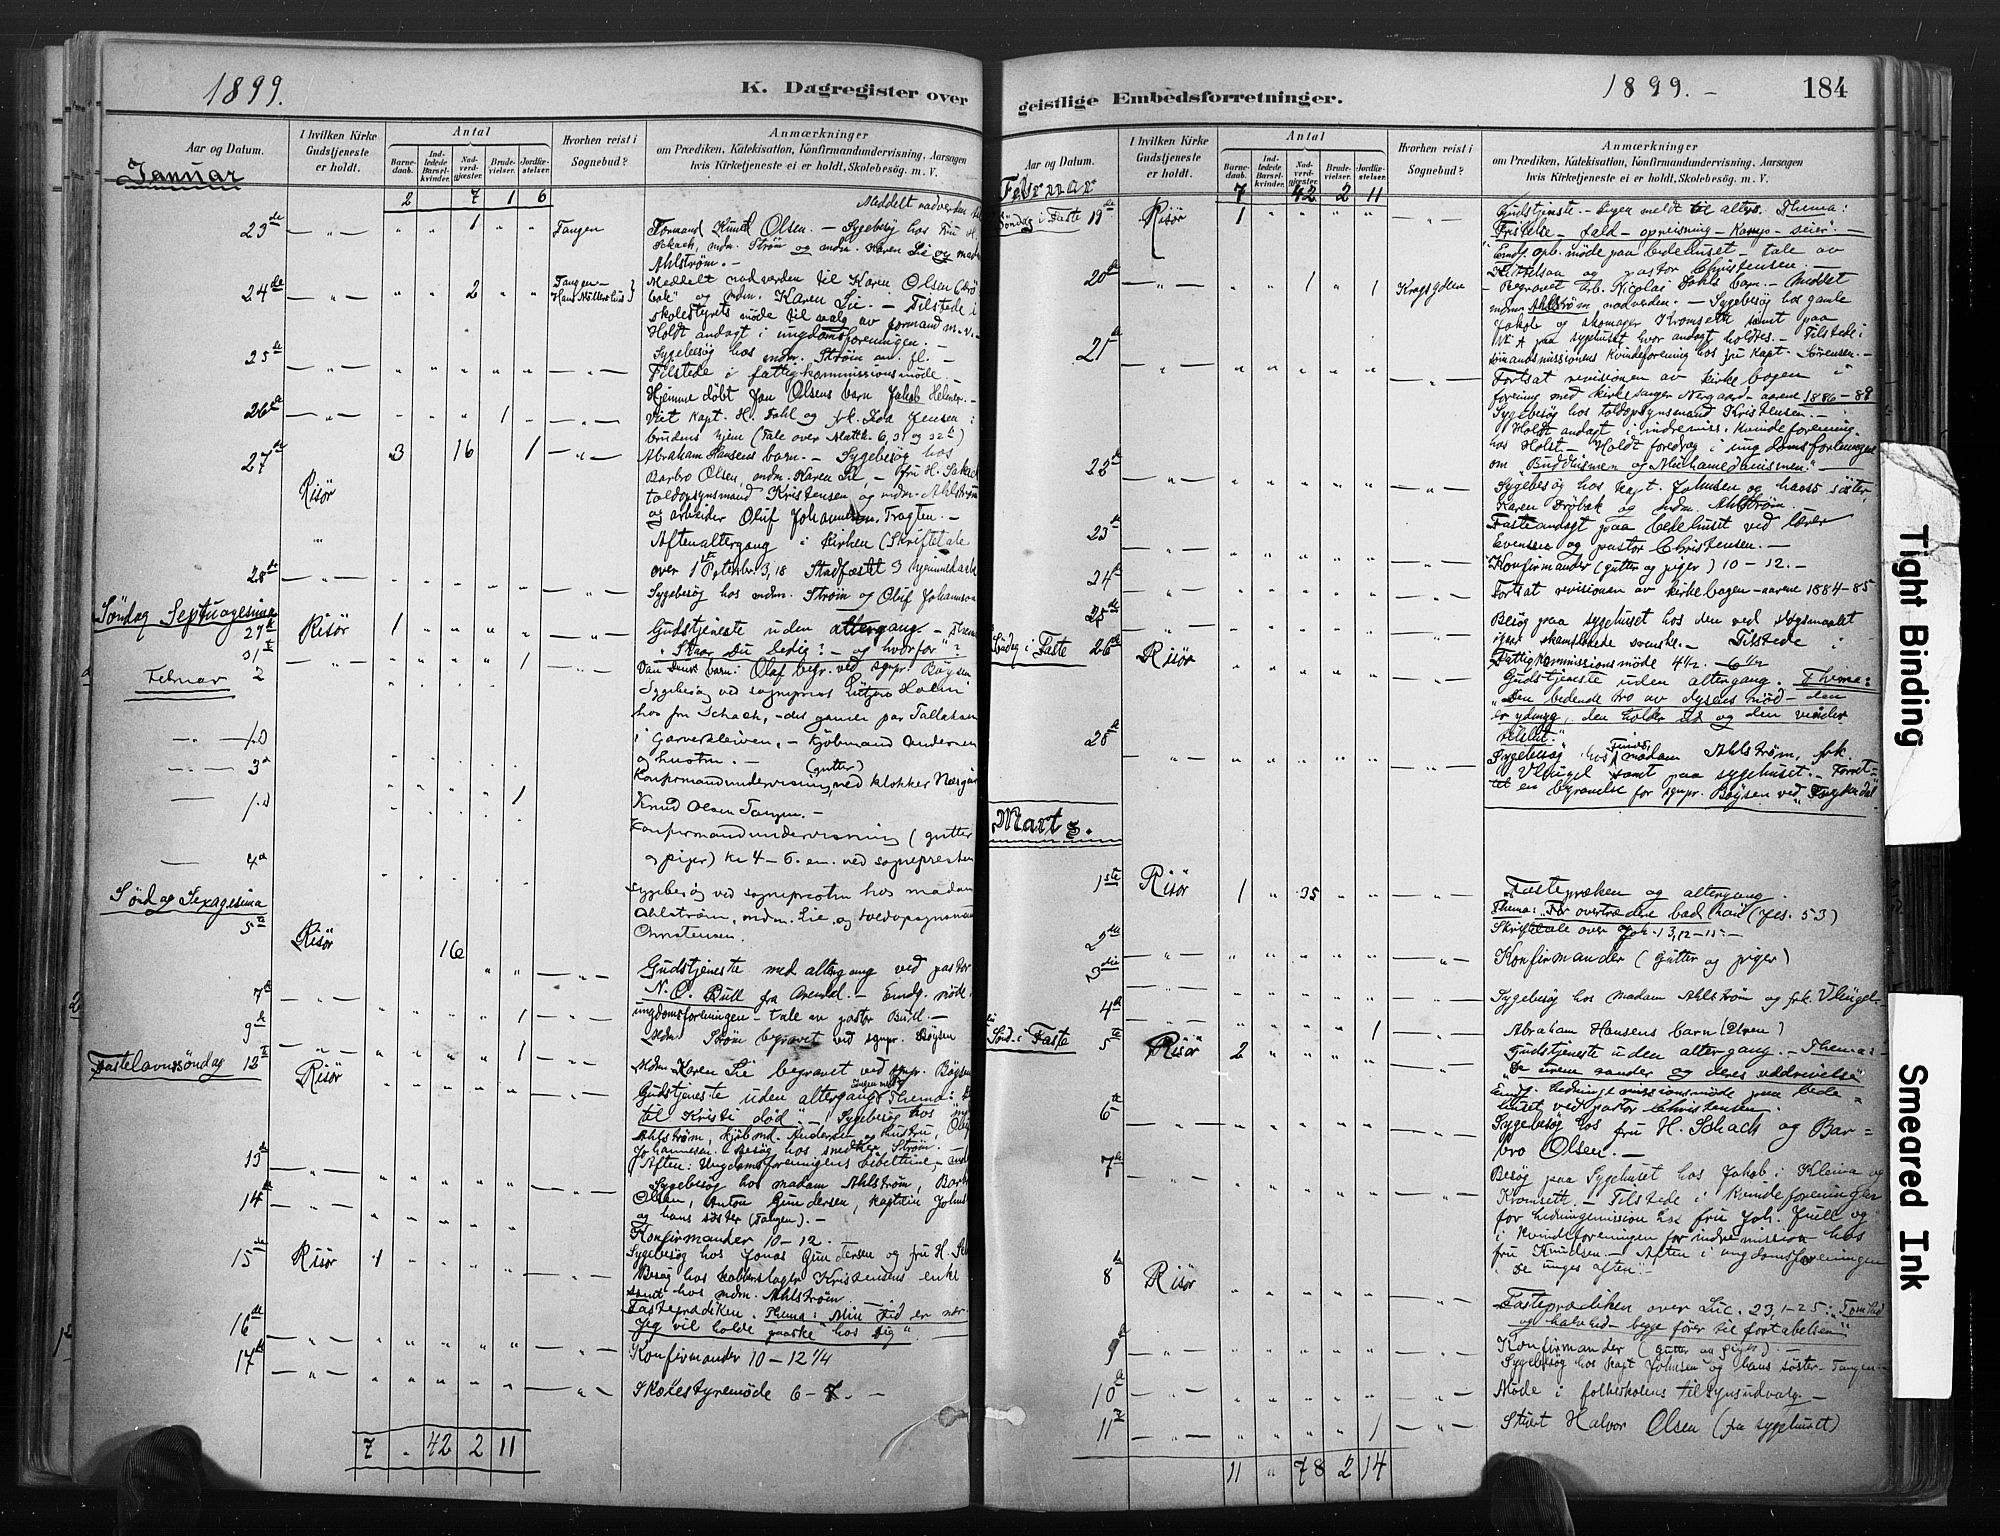 1899.
K. Dagregister over
Aar og Datum.
I hvilken Kirke Gudstjeneste er holdt.
Antal
Barnedaab.
Indledede Barselkvinder.
Nadverdgjester.
Brudevielser.
Jordfæstelser.
Hvorhen reist i Sognebud?
Anmærkninger
om Prædiken, Katekisation, Konfirmandundervisning, Aarsagen
hvis Kirketjeneste ei er holdt, Skolebesøg m. V.
Januar
2 7 1 6
Meddelt nadverden til
23de — " — 1 Tangen Formand Knud Olsen. — Sygebesøg hos Fru H.
Schach, mdm. Strøm og mdm. Karen Lie og mad.
Ahlstrøm. —
24de — " — 2 Tangen — Meddelt nadverden til Karen Olsen
og mdm. Karen Lie. — Tilstede i
skolestyrets møde til valg av formand m.v. —
Holdt andagt i ungdomsforeningen. —
25de — " — Sygebesøg hos mdm. Strøm
Tilstede i fattigkommissionsmøde. —
Hjemmedøbt Jan Olsens barn Jakob Helmer. —
26de — " — 1 Viet Kapt. H. Fahl og frk. Ida Jensen i
brudens hjem (Tale over Matth. 6, 31 og 32)
27de 3 16 1 Abraham Hansens barn. — Sygebesøg hos
Barbro Olsen, mdm. Karen Lie, — fru H. Schach
Risør toldopsynsmand Kristensen og mdm. Ahlstrøm
og arbeider Oluf Johannesen, Tragten. —
Aftenaltergang i kirken (Skriftetale
over 1ste Petersbr. 3, 18 Stadfæstet 3 hjemmedøbte
28de — " — Sygebesøg hos mdm. Strøm og Oluf Johannesen
Søndag Septuagesima
29de Risør 1 Gudstjeneste uden altergang. — Thema
"Skaar Du ledig? — og hvorfor"?
31te — " — 1 barn: Olaf begr. ved sgnpr. Bøysen
Februar 2 Sygebesøg ved sogneprest
hos fru Schach, — det gamle par Tallaksen
i Garverkleiven, — Kjøbmand Andersen
og hustru. — (gutter)
3d Konfirmandundervisning ved klokker Nærgaard
1 Knud Olsen Tangen. —
Konfirmandundervisning (gutter
4d og piger) kl 4—6. em. ved sognepresten
Sygebesøg ved sognepresten hos madam
Ahlstrøm, mdm. Lie, og toldopsynsmand
Christensen.
Sønd ag Sexagesima
5te Risør 16 Gudstjeneste med altergang ved pastor
N. C. Bull fra Arendal. — møde i
7de — " — ungdomsforeningen — tale av pastor Bull. —
9de — " — 1 Mdm. Strøm begravet ved sgnpr. Bøysen
Fastelavnssøndag 12te Risør 1 Mdm. Karen Lie begravet ved sgnpr. Bøysen
Gudstjeneste uden altergang Thema:
til Kristi død". — Sygebesøg hos
Ahlstrøm, kjøbmd. Andersen og hustru, Oluf
Johannesen. Besøg hos snedker Strøm.
13de Aften: Ungdomsforeningens bibeltime
Sygebesøg hos madam Ahlstrøm, Barbro
Olsen, Anton Gundersen, kaptein Johnsen
14de og hans søster (Tangen). —
Konfirmander 10—12. —
15de Risør 1 Sygebesøg hos Jonas Gundersen og fru H. Schach
Besøg hos kobberslager Kristensens enke
samt hos mdm. Ahlstrøm. —
16de Fasteprædiken. Thema: Min tid er nær.
Jeg vil holde paaske hos Dig".
17de Konfirmander 10—12 1/4
Skolestyremøde 6—7. —
7 " 42 2 11
geistlige Embedsforretninger.
1899. —
184
Aar og Datum.
I hvilken Kirke Gudstjeneste er holdt.
Antal
Barnedaab.
Indledede Barselkvinder.
Nadverdgjester.
Brudevielser.
Jordfæstelser.
Hvorhen reist i Sognebud?
Anmærkninger
om Prædiken, Katekisation, Konfirmandundervisning, Aarsagen
hvis Kirketjeneste ei er holdt, Skolebesøg m. V.
Februar
7 42 2 11
Søndag i Faste 19de Risør 1 Gudstjeneste. — Ingen meldt til alters. Thema:
Fristelse — fald — opreisning — Kamp — seier. —
Endf. opb. møde paa bedehuset — tale av
Kittelsen og pastor Christensen. —
20de 1 1 Kragsgden Begravet arb. Nicolai Dahls barn. — Meddelt
mdm Ahlstrøm nadverden. — Sygebesøg hos gamle
Jakob og skomager Kromseth samt paa
paa sygehuset hvor andagt holdtes. — Tilstede i
21de sømandsmissionens kvindeforening hos fru kapt. Sørensen. —
Fortsat revisionen av kirkebogen i
forening med kirkesanger Nergaard — aarene 1886—89
Sygebesøg hos toldopsynsmand Kristensen. —
Holdt andagt i indremiss. kvindeforening
hos Holst — Holdt foredrag i ungdomsforeningen
22de om "Buddhismen og Muhamedanismen". —
Sygebesøg hos kapt. Johnsen og hans søster,
Karen Drøbak og mdm. Ahlstrøm. —
23de Fasteandagt paa bedehuset ved lærer
Evensen og pastor Christensen. —
24de Konfirmander (gutter og piger) 10—12. —
25de Fortsat revisionen av kirkebogen — aarene 1884—85
Besøg paa sygehuset hos den ved
svenske. — Tilstede i
Søndag i Faste 26de Risør Fattigkommissionsmøde 4½ — 6½
Gudstjeneste uden altergang. Thema:
"Den bedende tro av dybeste nød — den
er ydmyg, den holder ud og den vinder
tilslut."
28de Sygebesøg hos madam Ahlstrøm, frk.
Vleugel samt paa sygehuset. — Forret-
tet en begravelse for sgnpr. Bøysen ved
Marts.
1ste Risør 1 " 35 Fastepræken og altergang.
Thema: "For overtrædere bad han" (Jes. 53)
Skriftetale over Joh. 13, 12—15 —
2den Konfirmander (gutter og piger)
3die
4de Sygebesøg hos madam Ahlstrøm og frk. Vleugel —
1 Abraham Hansens barn
Sønd. i Faste 5te Risør 2 Gudstjeneste uden altergang. — Thema: —
"De urene aander og deres uddrivelse
Eindf. hedningemissionsmøde paa bede-
huset ved pastor Christensen.
6te Sygebesøg hos fru H. Schach og Bar-
bro Olsen. —
7de Besøg paa Sygehuset hos Jakob i Kleiva og
Kromseth. — Tilstede i kvindeforeningen
for hedningemission hos fru Joh. Juell og
i kvindeforeningen for indremission hos
fru Knudsen. — Aften i ungdomsforeningen
"De unges aften". —
8de Risør Fasteprædiken over Luc. 23, 1—25: "Tomhed
og halvhed — begge fører til fortabelsen"
9de Konfirmander (gutter og piger). —
Sygebesøg hos Kapt Johnsen og hans søster — Tangen —
10de Møde i folkeskolens tilsynsudvalg —
11te 1 Stuert Halvor Olsen (fra sygehuset)
11 " 78 2 14
Tight Binding
Smeared Ink